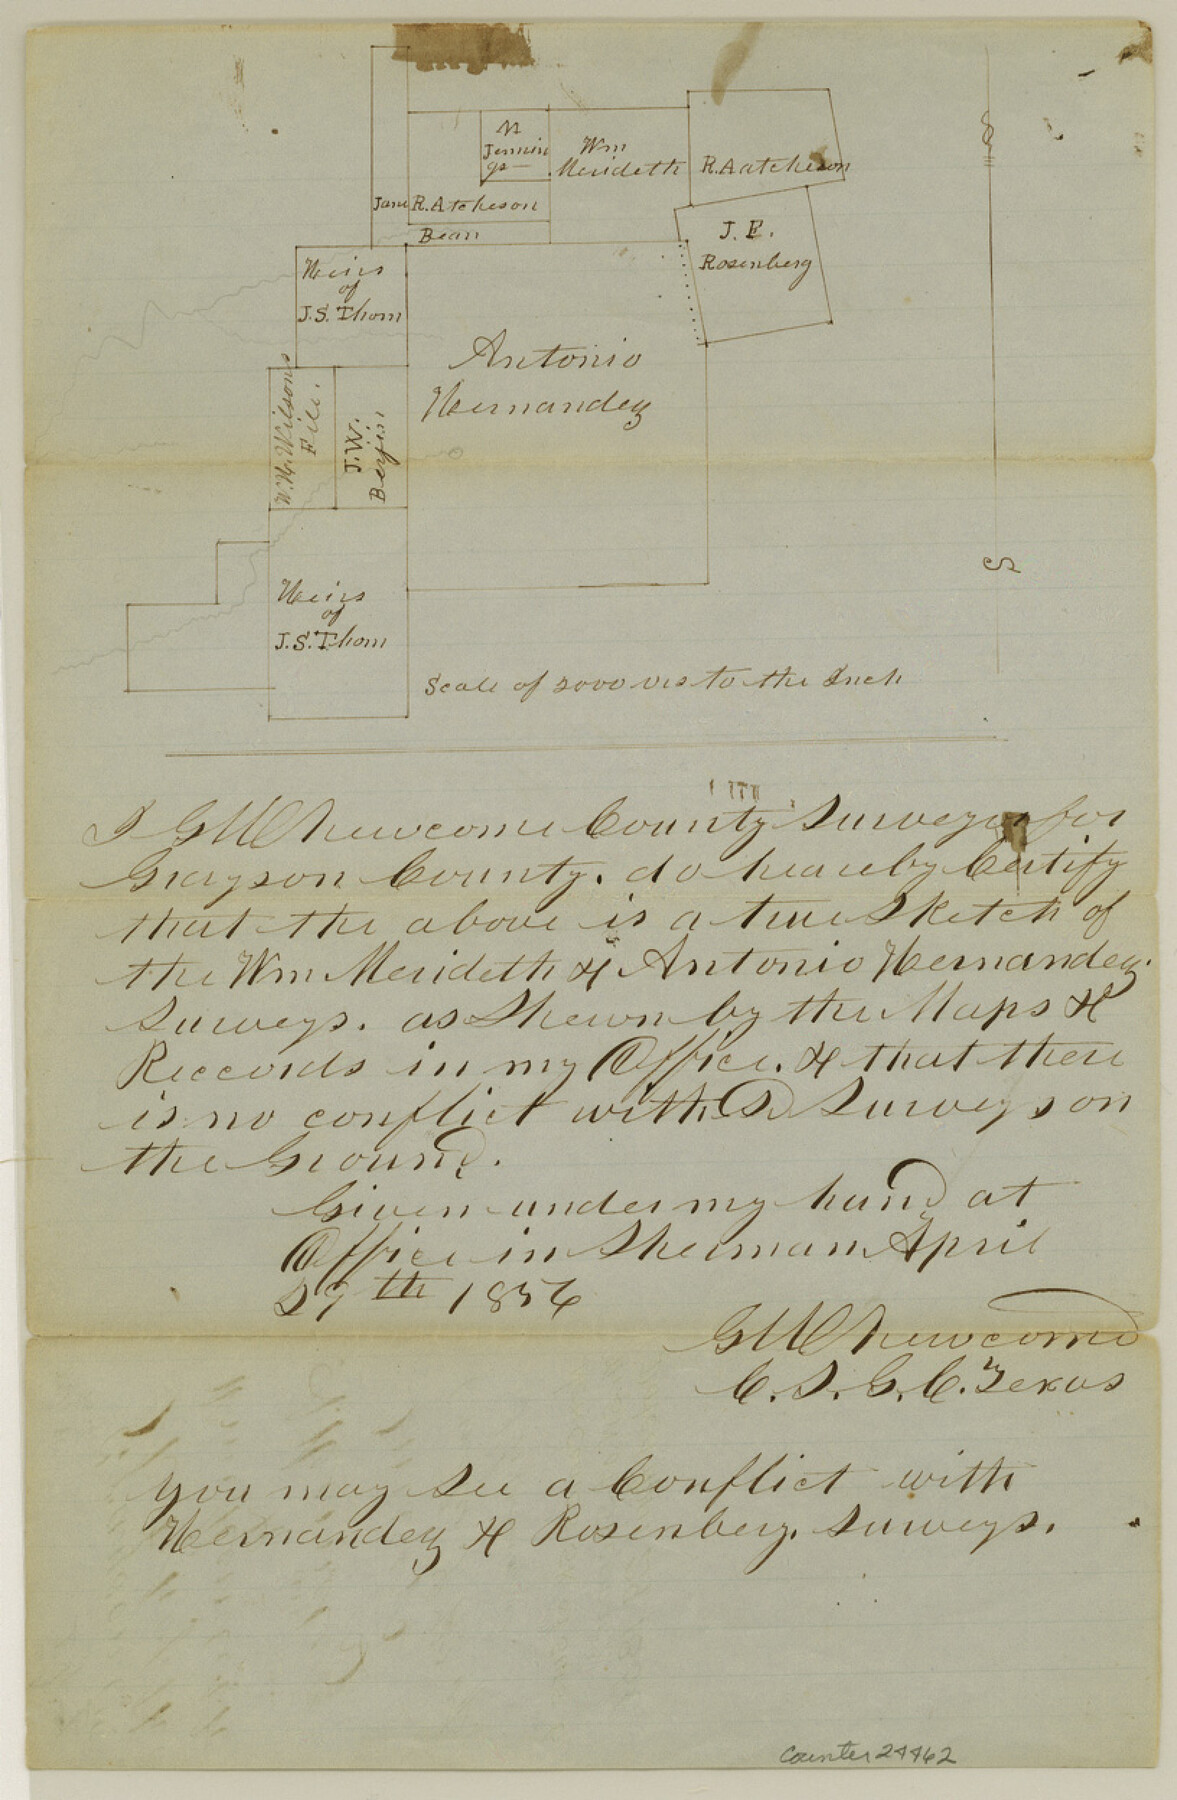 N
Jennin
gs
Wm
Merideth
R. Aatcheson
Jane
R. Atcheson
Bean
J. E.
Rosenberg
Heirs
of
J.S. Thom
Antonio
Hernandez
W.H. Wilsons
File.
J.W.
S
Heirs
of
J.S. Thom
Scale of 2000 vrs to the Inch
I G W Newcome County Surveyor for
Grayson County. do heareby Certify
that the above is a true Sketch of
the Wm Merideth & Antonio Hernandez
Surveys. as Shewn by the Maps &
Reccords in my Office. & that there
is no conflict with Sd Surveys on
the Ground.
Given under my hand at
Office in Sherman April
27th 1856
G W Newcome
C. S. G. C. Texas
you may See a Conflict with
Hernandez & Rosenberg. Surveys.
Counter 24462